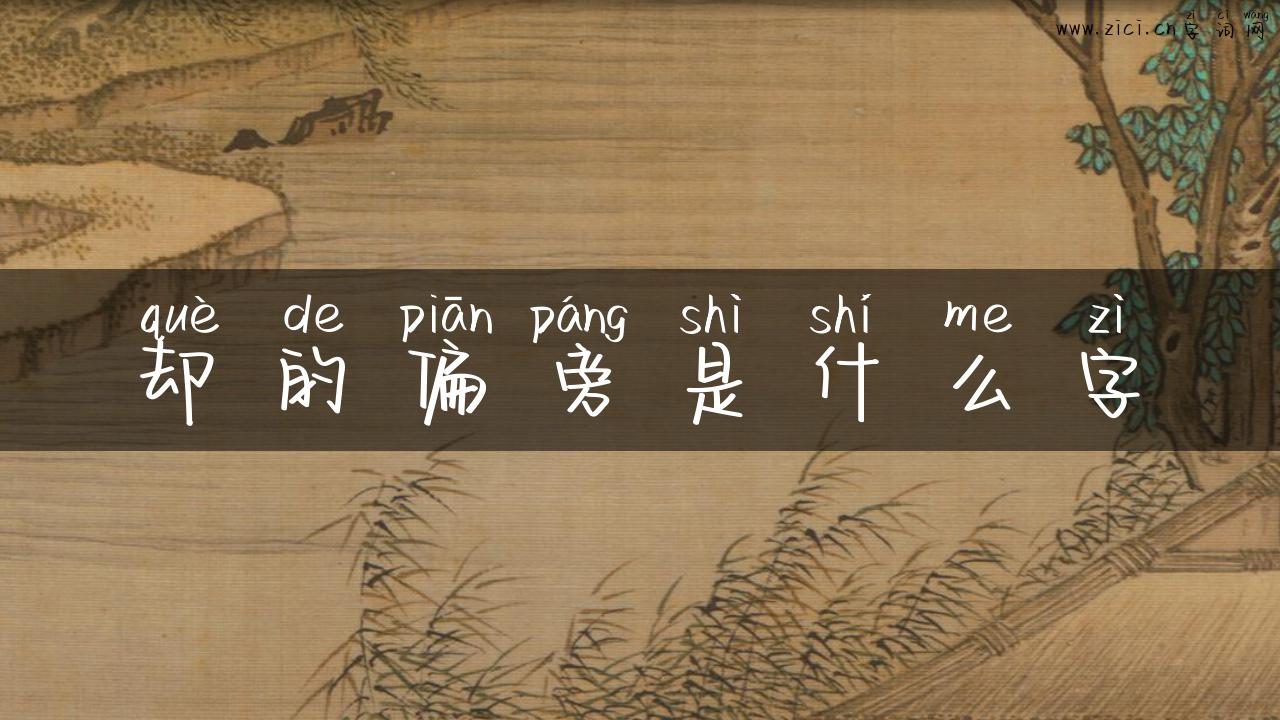 zì cí wǎng
www.zici.cn字词网
què de piān páng shì shí me zì
却的偏旁是什么字